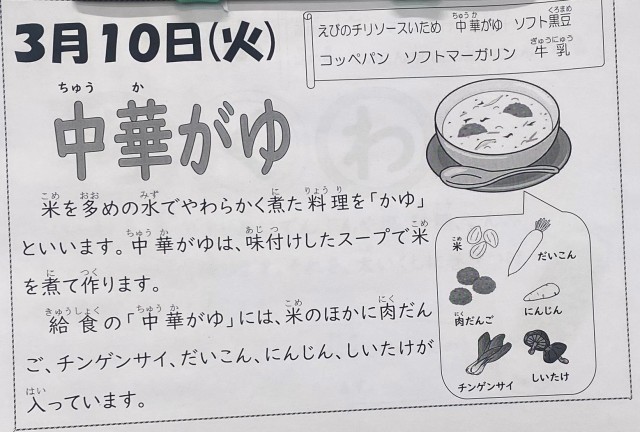 3月10日(火)
えびのチリソースいため　中華がゆ　ソフト黒豆
コッペパン　ソフトマーガリン　牛乳
中華がゆ
米を多めの水でやわらかく煮た料理を「かゆ」
といいます。中華がゆは、味付けしたスープで米
を煮て作ります。
給食の「中華がゆ」には、米のほかに肉だん
ご、チンゲンサイ、だいこん、にんじん、しいたけが
入っています。
米
だいこん
肉だんご
にんじん
チンゲンサイ
しいたけ